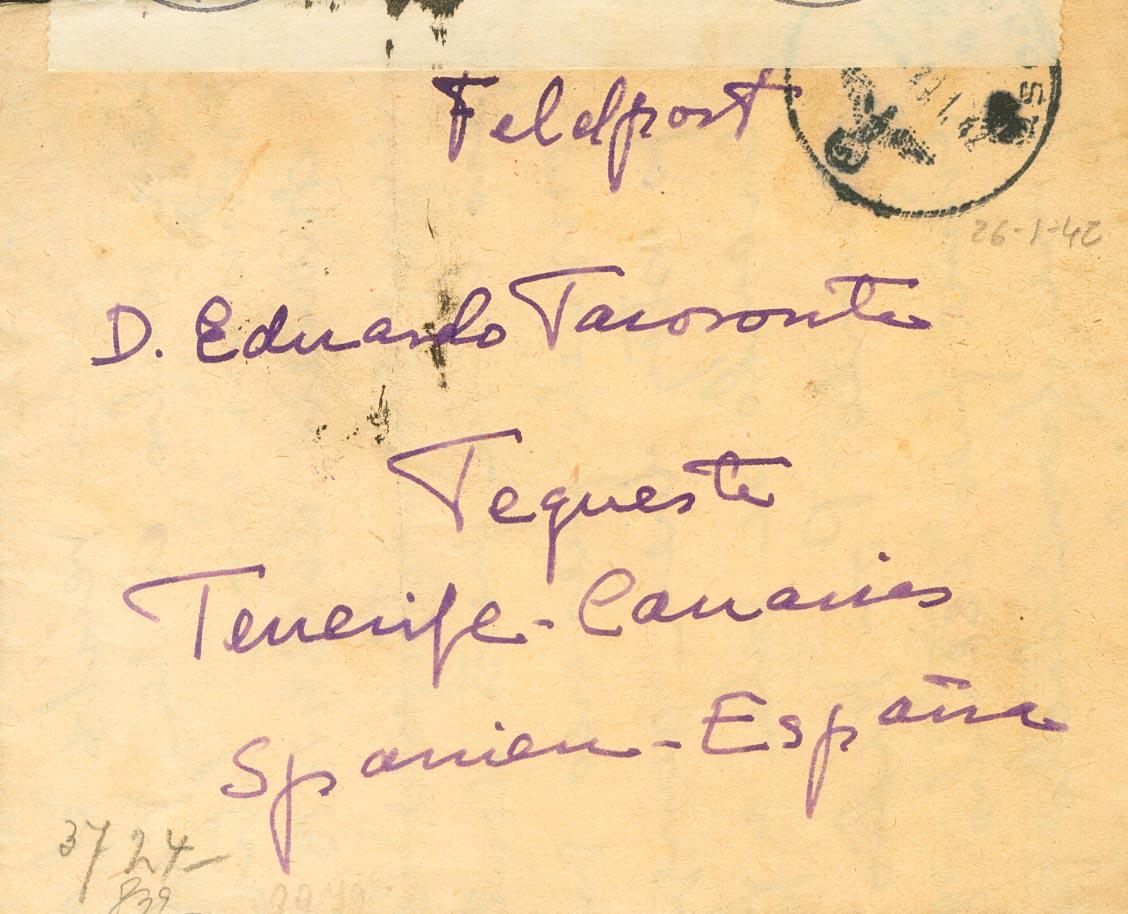 Feldpost
26-1-42
D. Eduardo Tacoronte
Tegueste
Tenerife - Canarias
Spanien - España
3724-